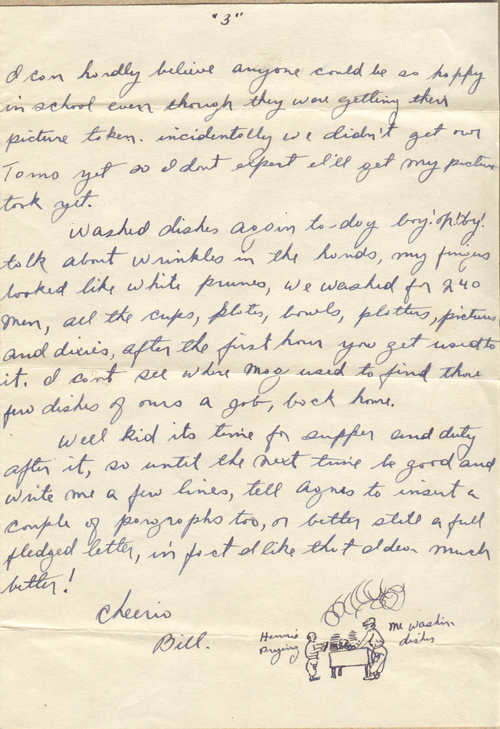 "3"
I can hardly believe anyone could be so happy
in school even though they were getting their
picture taken. incidentally we didn't get our
Tams yet so I dont expect I'll get my picture
took yet.
Washed dishes again to-day boy! oh! boy!
talk about wrinkles in the hands, my fingers
looked like white prunes, we washed for 240
men, all the cups, plates, bowls, platters, pictures
and dixies, after the first hour you get used to
it. I can't see where Mag used to find those
few dishes of ours a job, back home.
Well kid its time for supper and duty
after it, so until the next time be good and
write me a few lines, tell Agnes to insert a
couple of paragraphs too, or better still a full
fledged letter, in fact I like that idea much
better!
Cheerio
Bill.
Hennie
Drying
Me Washin
dishes